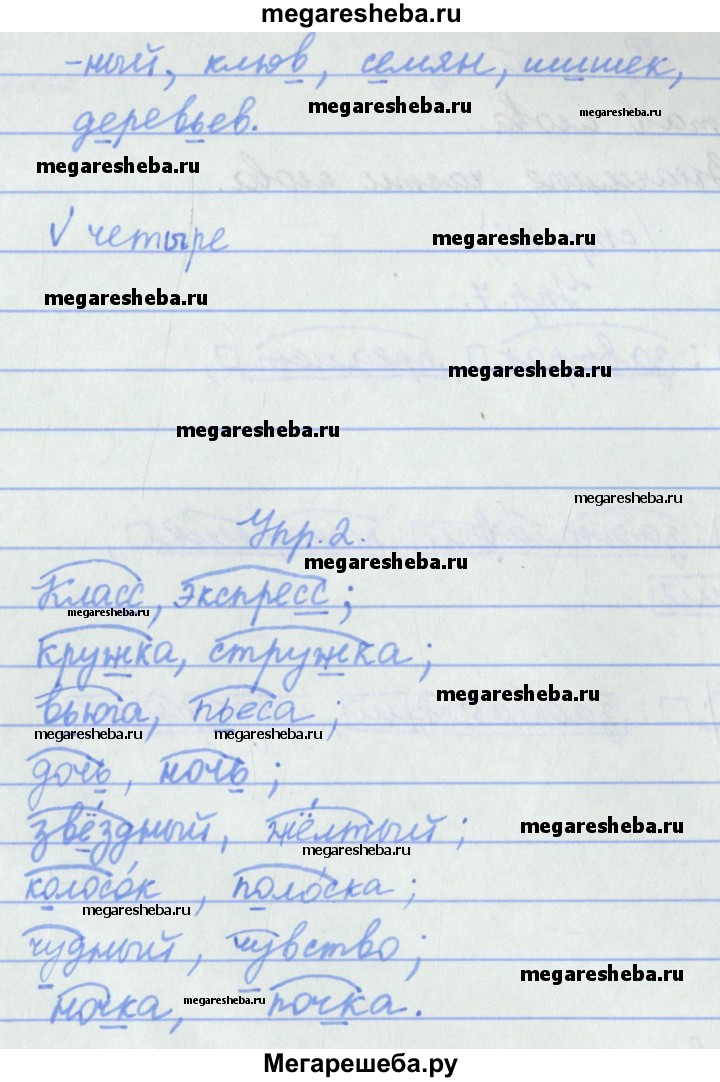 megaresheba.ru
-ный, клюв, семян, шишек,
megaresheba.ru
megaresheba.ru
деревьев.
megaresheba.ru
√ четыре
megaresheba.ru
megaresheba.ru
megaresheba.ru
megaresheba.ru
megaresheba.ru
Упр. 2.
megaresheba.ru
Класс, экспресс;
megaresheba.ru
кружка, стружка;
megaresheba.ru
вьюга, пьеса;
megaresheba.ru
megaresheba.ru
дочь, ночь;
звёздный, жёлтый;
megaresheba.ru
megaresheba.ru
колосо́к, поло́ска;
megaresheba.ru
чудный, чувство;
megaresheba.ru
ночка, почка.
megaresheba.ru
Мегарешеба.ру